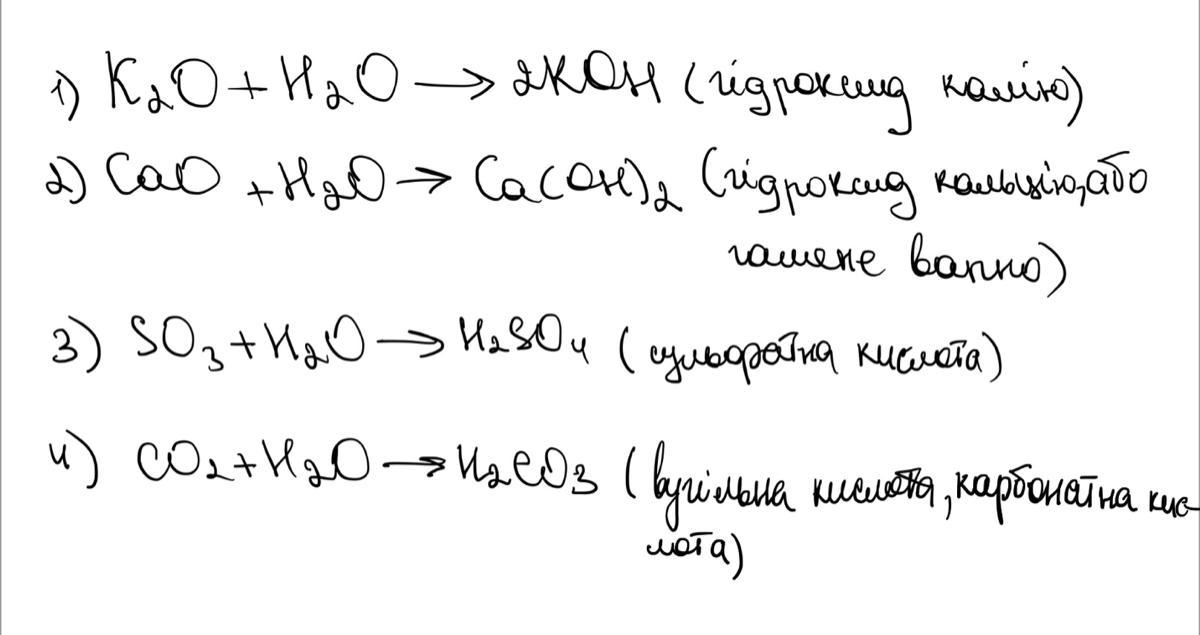 1) K₂O + H₂O → 2KOH (гідроксид калію)
2) CaO + H₂O → Ca(OH)₂ (гідроксид кальцію, або
гашене вапно)
3) SO₃ + H₂O → H₂SO₄ (сульфатна кислота)
4) CO₂ + H₂O → H₂CO₃ (вугільна кислота, карбонатна кис-
лота)